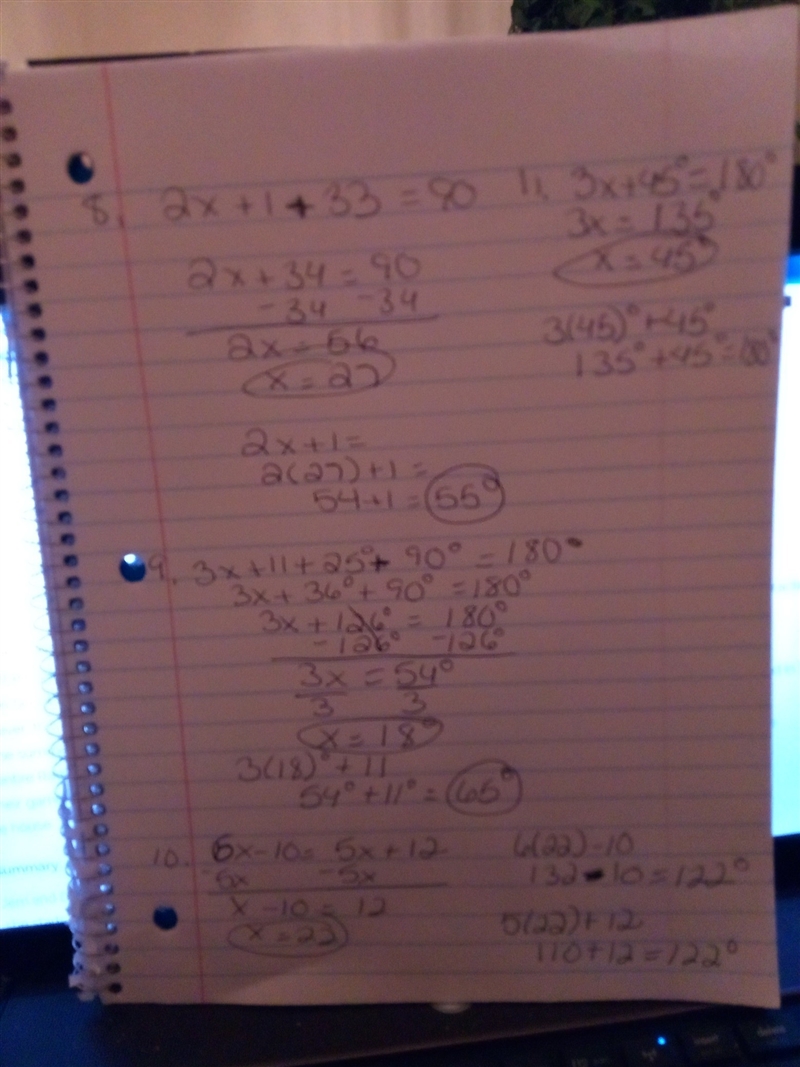 8. 2x + 1 + 33 = 90
2x + 34 = 90
-34 -34
2x = 56
x = 27
2x + 1 =
2(27) + 1 =
54 + 1 = 55°
9. 3x + 11 + 25° + 90° = 180°
3x + 36° + 90° = 180°
3x + 126° = 180°
-126° -126°
3x = 54°
3 3
x = 18°
3(18)° + 11
54° + 11° = 65°
10. 6x - 10 = 5x + 12
-5x -5x
x - 10 = 12
x = 22
11. 3x + 45° = 180°
3x = 135°
x = 45°
3(45)° + 45°
135° + 45° = 180°
6(22) - 10
132 - 10 = 122°
5(22) + 12
110 + 12 = 122°
summary